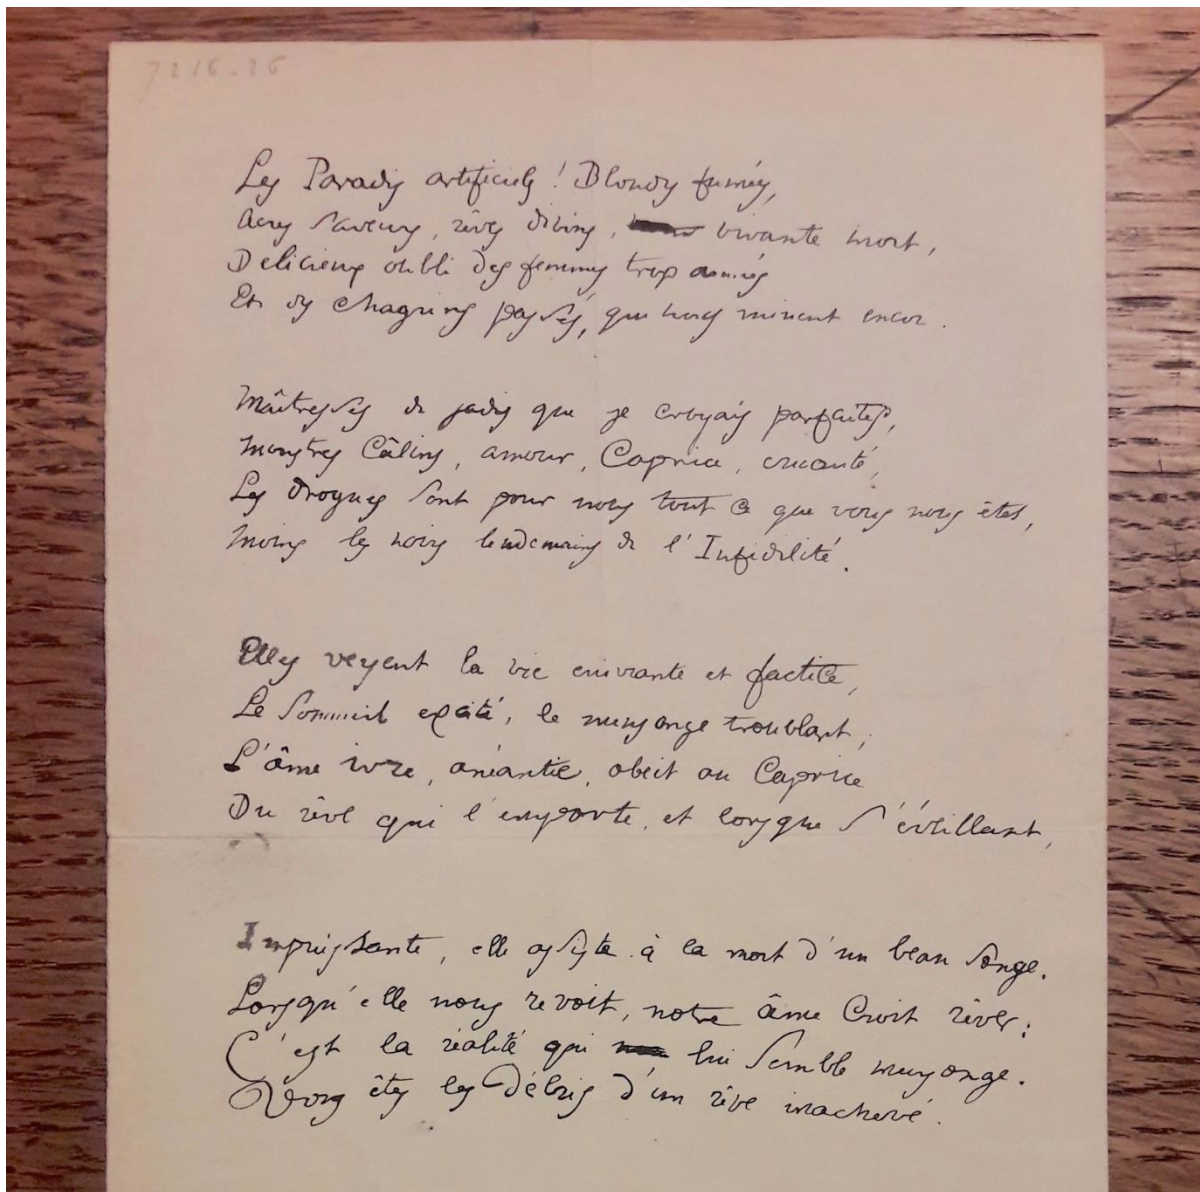 7216-26
Les Paradis artificiels ! Blondes fumées,
Acres saveurs, rêves divins, vivante mort,
Delicieux oubli des femmes trop aimées
Et des chagrins passés, qui nous minent encor.
Maîtresses de jadis que je croyais parfaites,
Monstres Câlins, amour, Caprice, cruauté,
Les drogues sont pour nous tout ce que vous nous êtes,
Moins les noirs lendemains de l'Infidélité.
Elles versent la vie enivrante et factice,
Le Sommeil excité, le mensonge troublant,
L'âme ivre, anéantie, obeit au Caprice
Du rêve qui l'emporte, et lorsque s'éveillant,
Impuissante, elle assiste à la mort d'un beau songe.
Lorsqu'elle nous revoit, notre âme Croit rêver :
C'est la réalité qui lui semble mensonge.
Vous êtes les débris d'un rêve inachevé.